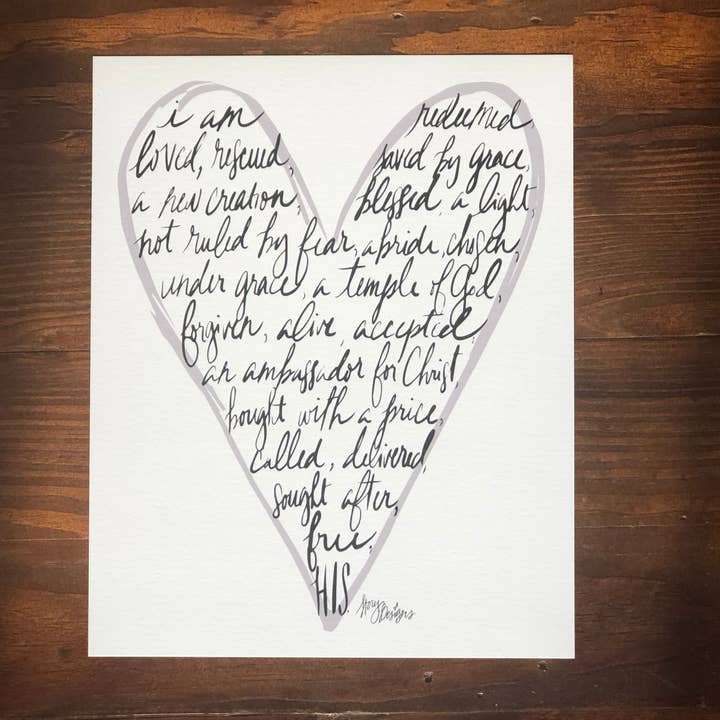 i am redeemed,
loved, rescued, saved by grace,
a new creation, blessed, a light,
not ruled by fear, a bride, chosen,
under grace, a temple of God,
forgiven, alive, accepted,
an ambassador for Christ,
bought with a price,
called, delivered,
sought after,
free,
HIS.
Story Designs